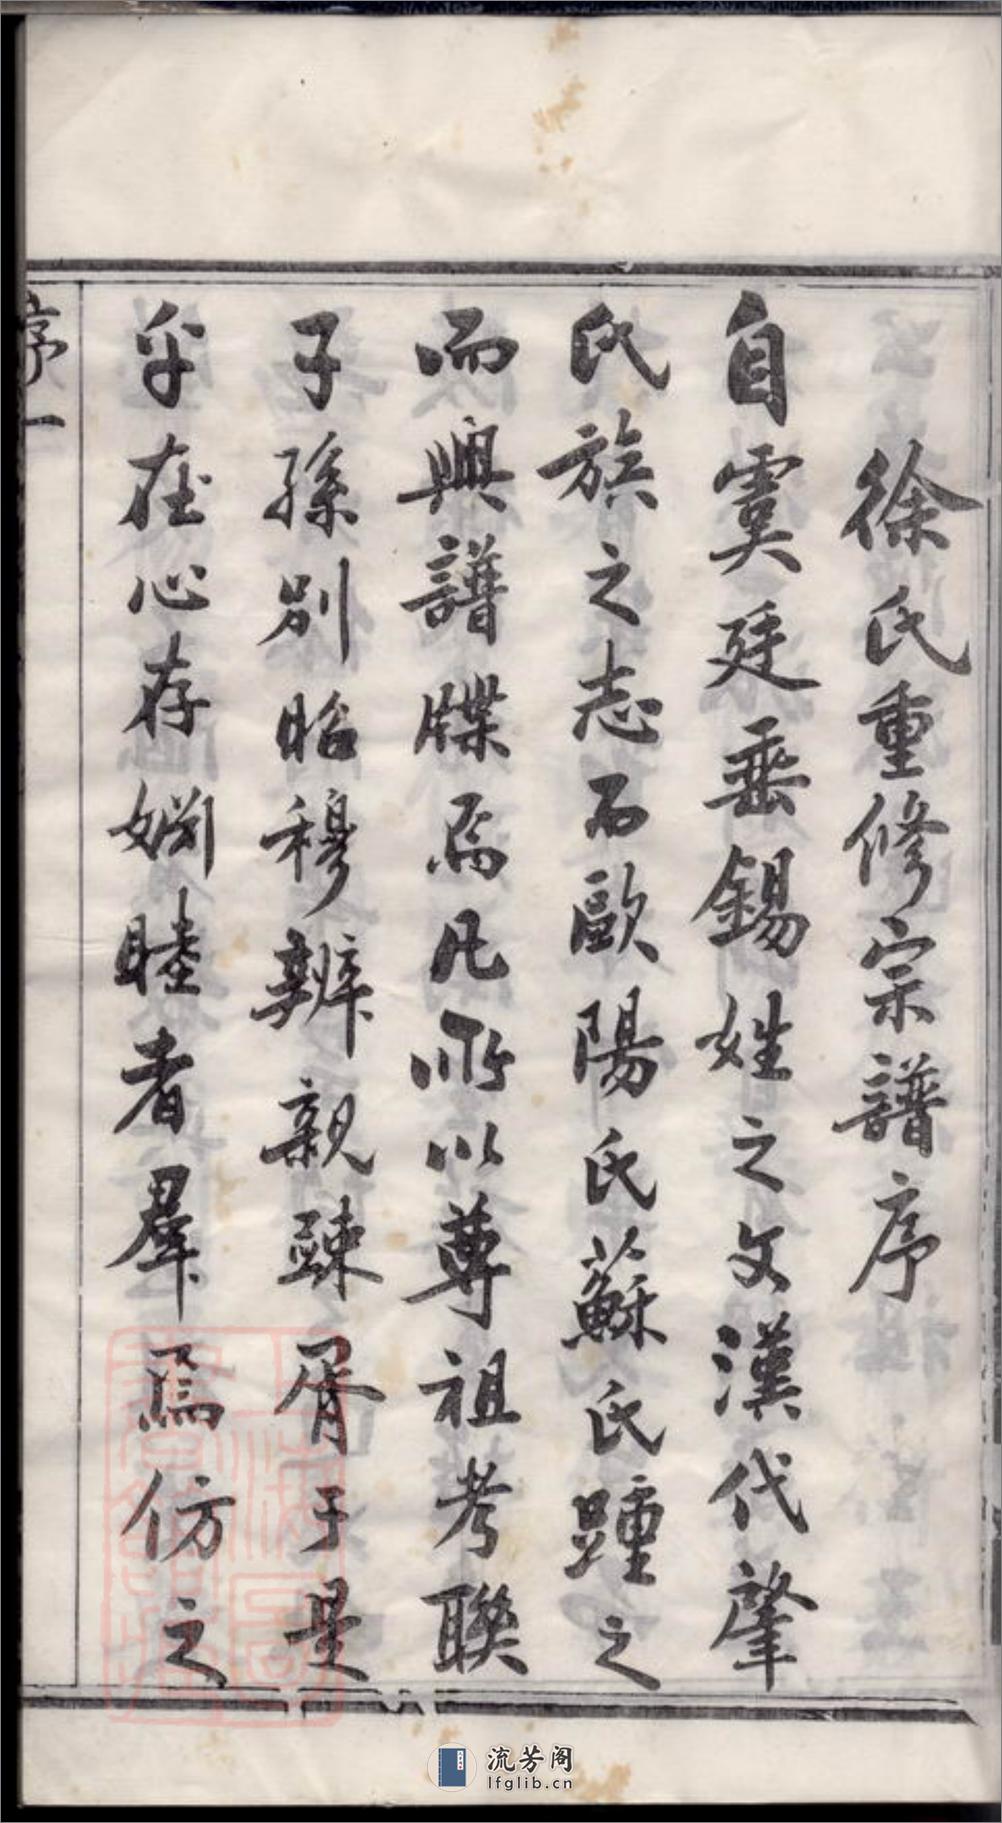 徐氏重修宗譜序
自虞廷垂錫姓之文漢代肇
氏族之志而歐陽氏蘇氏踵之
而興譜牒焉凡所以尊祖考聯
子孫別昭穆辨親疎胥于是
乎在心存婣睦者羣焉仿之
序一
流芳阁
lfglib.cn